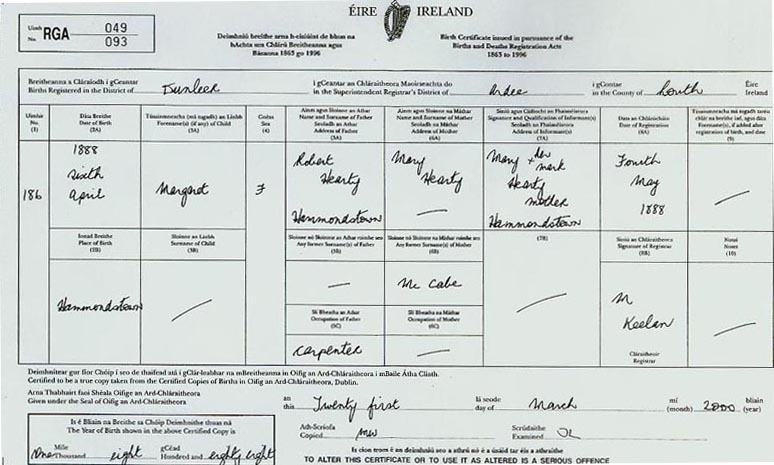 ÉIRE IRELAND
Uimh
No.
RGA
049
093
Deimhniú breithe arna h-eisiúint de bhun na
hAchta um Chlárú Breitheanna agus
Básanna 1863 go 1996
Birth Certificate issued in pursuance of the
Births and Deaths Registration Acts
1863 to 1996
Breitheanna a Cláraíodh i gCeantar
Births Registered in the District of
Dunleer
i gCeantar an Chláraitheora Maoirseachta do
in the Superintendent Registrar's District of
Ardee
i gContae
in the County of
Louth
Éire
Ireland
Uimhir
No.
(1)
Dáta Breithe
Date of Birth
(2A)
Túsainmneacha (má tugadh) an Linbh
Forename(s) (if any) of Child
(3A)
Gnéas
Sex
(4)
Ainm agus Sloinne an Athar
Name and Surname of Father
Seoladh an Athar
Address of Father
(5A)
Ainm agus Sloinne na Máthar
Name and Surname of Mother
Seoladh na Máthar
Address of Mother
(6A)
Síniú agus Cáilíocht an Fhaisnéiseora
Signature and Qualification of Informant(s)
Seoladh an Fhaisnéiseora
Address of Informant(s)
(7A)
Dáta an Chláraithe
Date of Registration
(8A)
(9)
186
1888
Sixth
April
Margaret
F
Robert
Hearty
Hammondstown
Mary
Hearty
—
Mary + her mark
Hearty
mother
Hammondstown
Fourth
May
1888
Ionad Breithe
Place of Birth
(2B)
Sloinne an Linbh
Surname of Child
(3B)
Sloinne nó Sloinnte an Athar roimhe seo
Any former Surname(s) of Father
(5B)
Sloinne nó Sloinnte na Máthar roimhe seo
Any former Surname(s) of Mother
(6B)
(7B)
Síniú an Chláraitheora
Signature of Registrar
(8B)
Nótaí
Notes
(10)
Hammondstown
—
Mc Cabe
M
Keelan
Cláraitheoir
Registrar
Slí Bheatha an Athar
Occupation of Father
(5C)
Slí Bheatha na Máthar
Occupation of Mother
(6C)
carpenter
—
Deimhnítear gur fíor Chóip í seo de thaifead atá i gClár-leabhar na mBreitheanna in Oifig an Ard-Chláraitheora i mBaile Átha Cliath.
Certified to be a true copy taken from the Certified Copies of Births in Oifig an Ard-Chláraitheora, Dublin.
Arna Thabhairt faoi Shéala Oifige an Ard-Chláraitheora
Given under the Seal of Oifig an Ard-Chláraitheora
an
this
Twenty first
lá seo de
day of
March
mí
(month)
2000
bliain
(year)
Is é Bliain na Breithe sa Chóip Deimhnithe thuas ná
The Year of Birth shown in the above Certified Copy is
One
Míle
Thousand
eight
gCéad
Hundred and
eighty eight
Ath-Scríofa
Copied
Scrúdaithe
Examined
Is cion trom é an deimhniú seo a athrú nó é a úsáid tar éis a athraithe
TO ALTER THIS CERTIFICATE OR TO USE IT AS ALTERED IS A SERIOUS OFFENCE